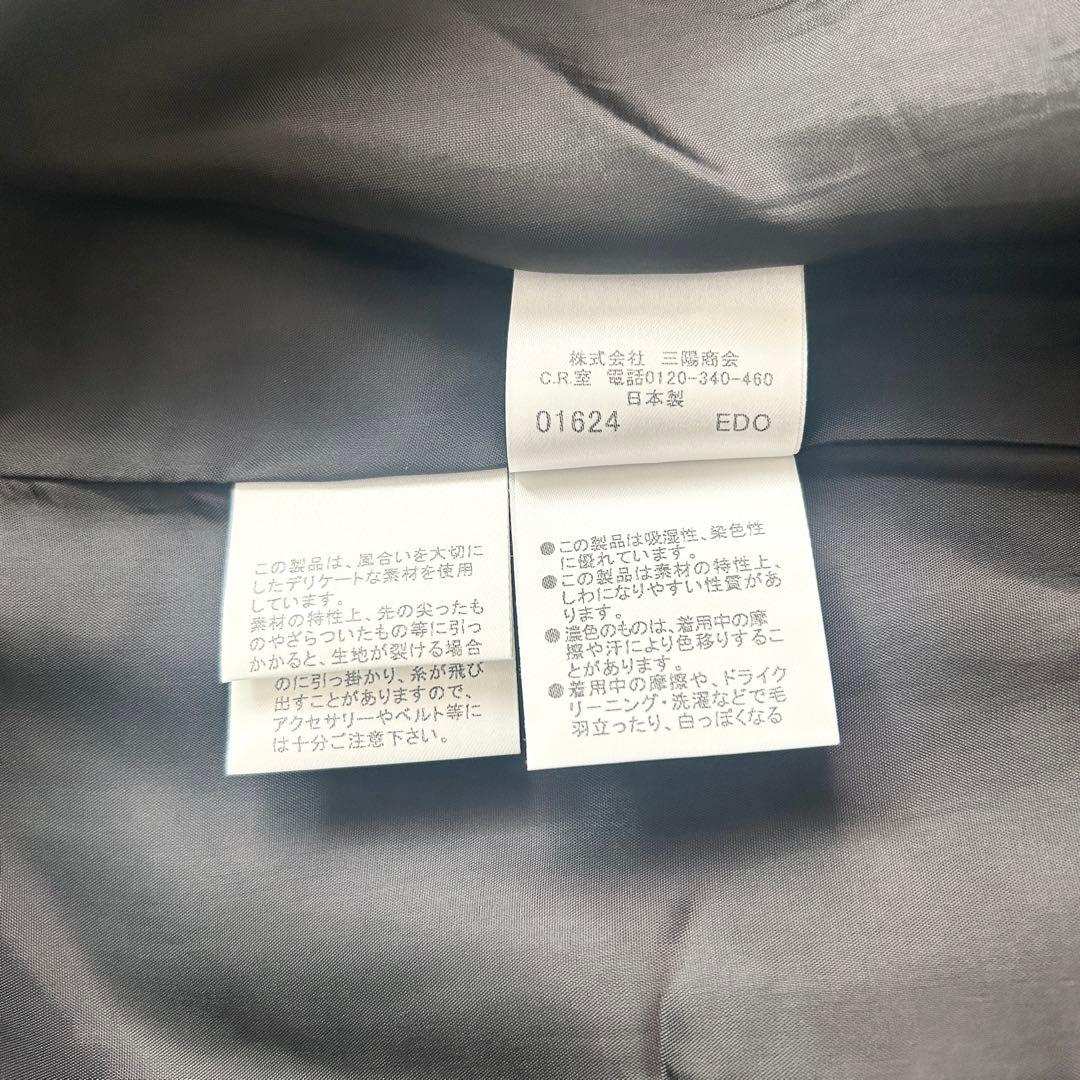 株式会社 三陽商会
C.R.室 電話0120-340-460
日本製
01624 EDO
この製品は、風合いを大切に
したデリケートな素材を使用
しています。
素材の特性上、先の尖ったも
のやざらついたもの等に引っ
かかると、生地が裂ける場合
のに引っ掛かり、糸が飛び
出すことがありますので、
アクセサリーやベルト等に
は十分ご注意下さい。
●この製品は吸湿性、染色性
に優れています。
●この製品は素材の特性上、
しわになりやすい性質があ
ります。
●濃色のものは、着用中の摩
擦や汗により色移りするこ
とがあります。
●着用中の摩擦や、ドライク
リーニング・洗濯などで毛
羽立ったり、白っぽくなる